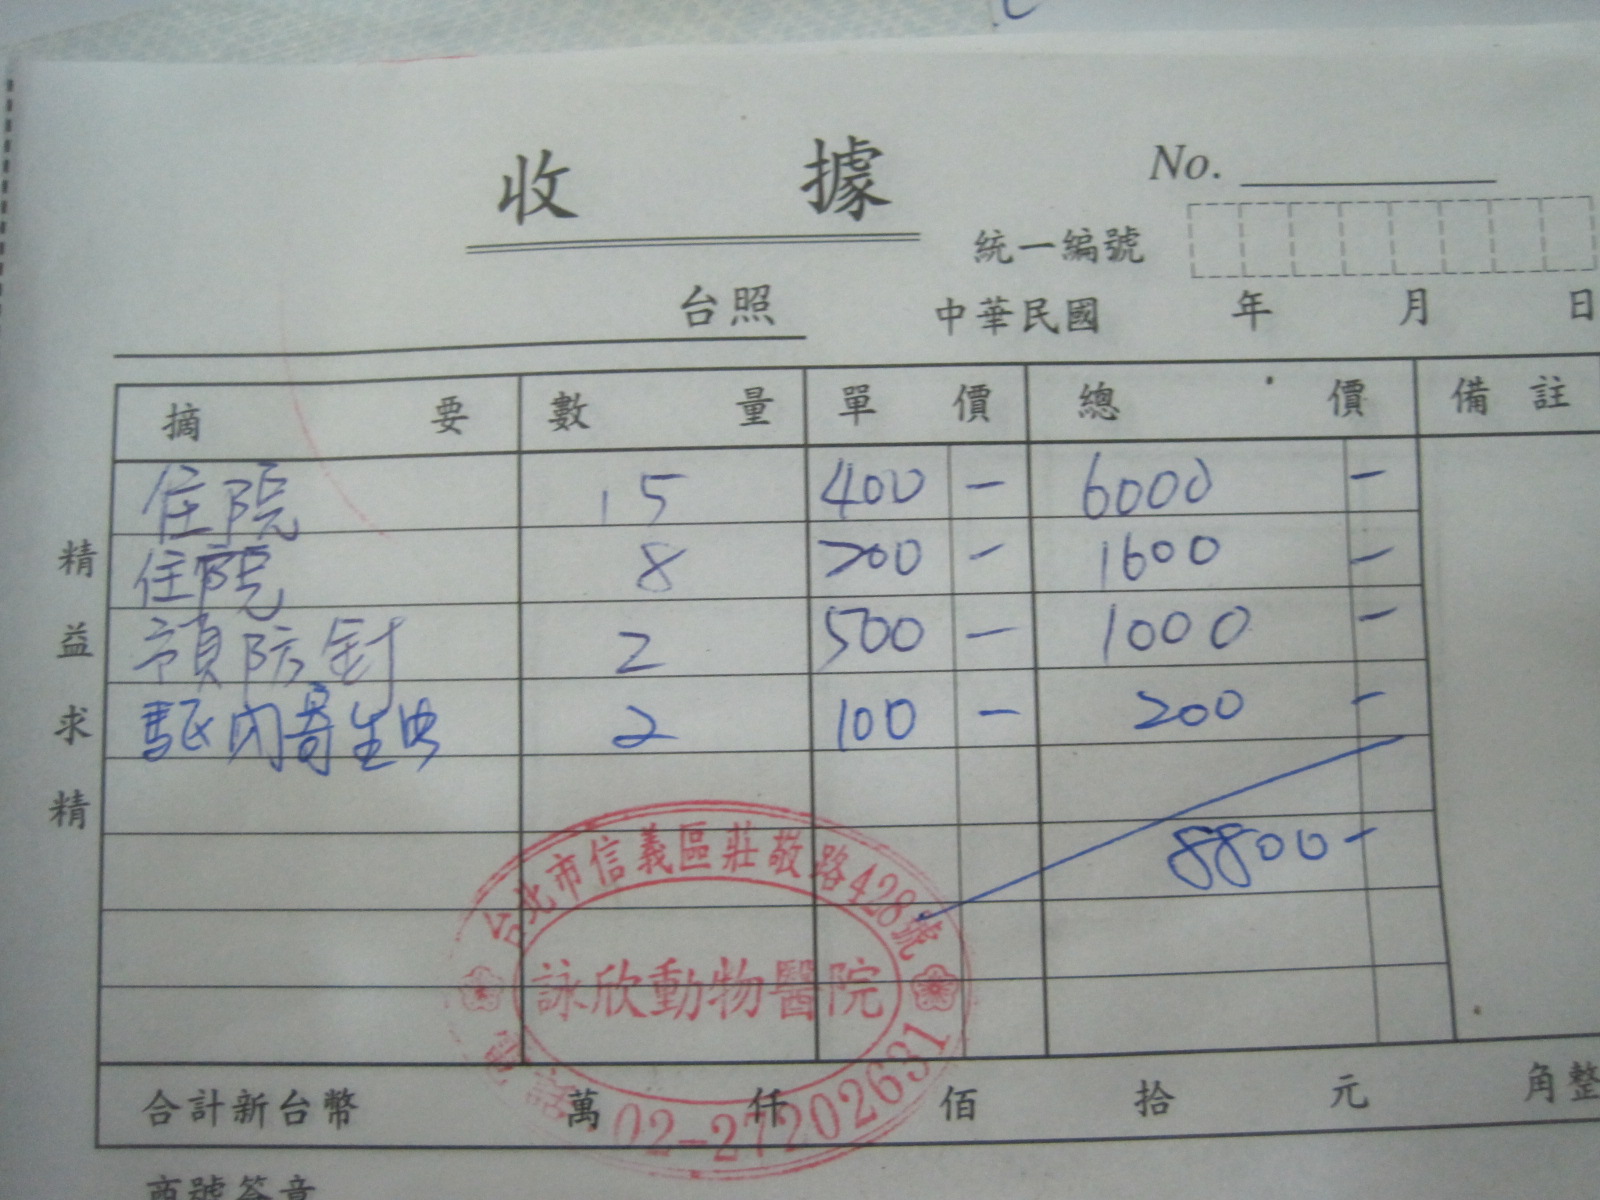 收據
No.
統一編號
台照 中華民國 年 月 日
摘要 數量 單價 總價 備註
住院 15 400 - 6000 -
住院 8 200 - 1600 -
預防針 2 500 - 1000 -
驅內寄生虫 2 100 - 200 -
8800-
精益求精
台北市信義區莊敬路428號
詠欣動物醫院
電話:02-27202631
合計新台幣 萬 仟 佰 拾 元 角整
商號簽章